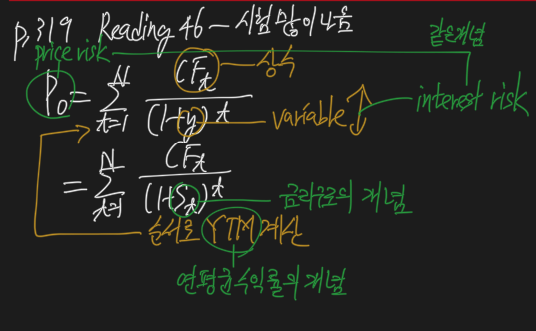 p.319 Reading 46 – 시험 많이 나옴
price risk 같은개념
P₀ = Σ_{t=1}^{N} CF_t / (1+y)^t
상수
variable ↕ interest risk
= Σ_{t=1}^{N} CF_t / (1+S_t)^t
금리구조의 개념
순서로 YTM 계산
연평균수익률의 개념